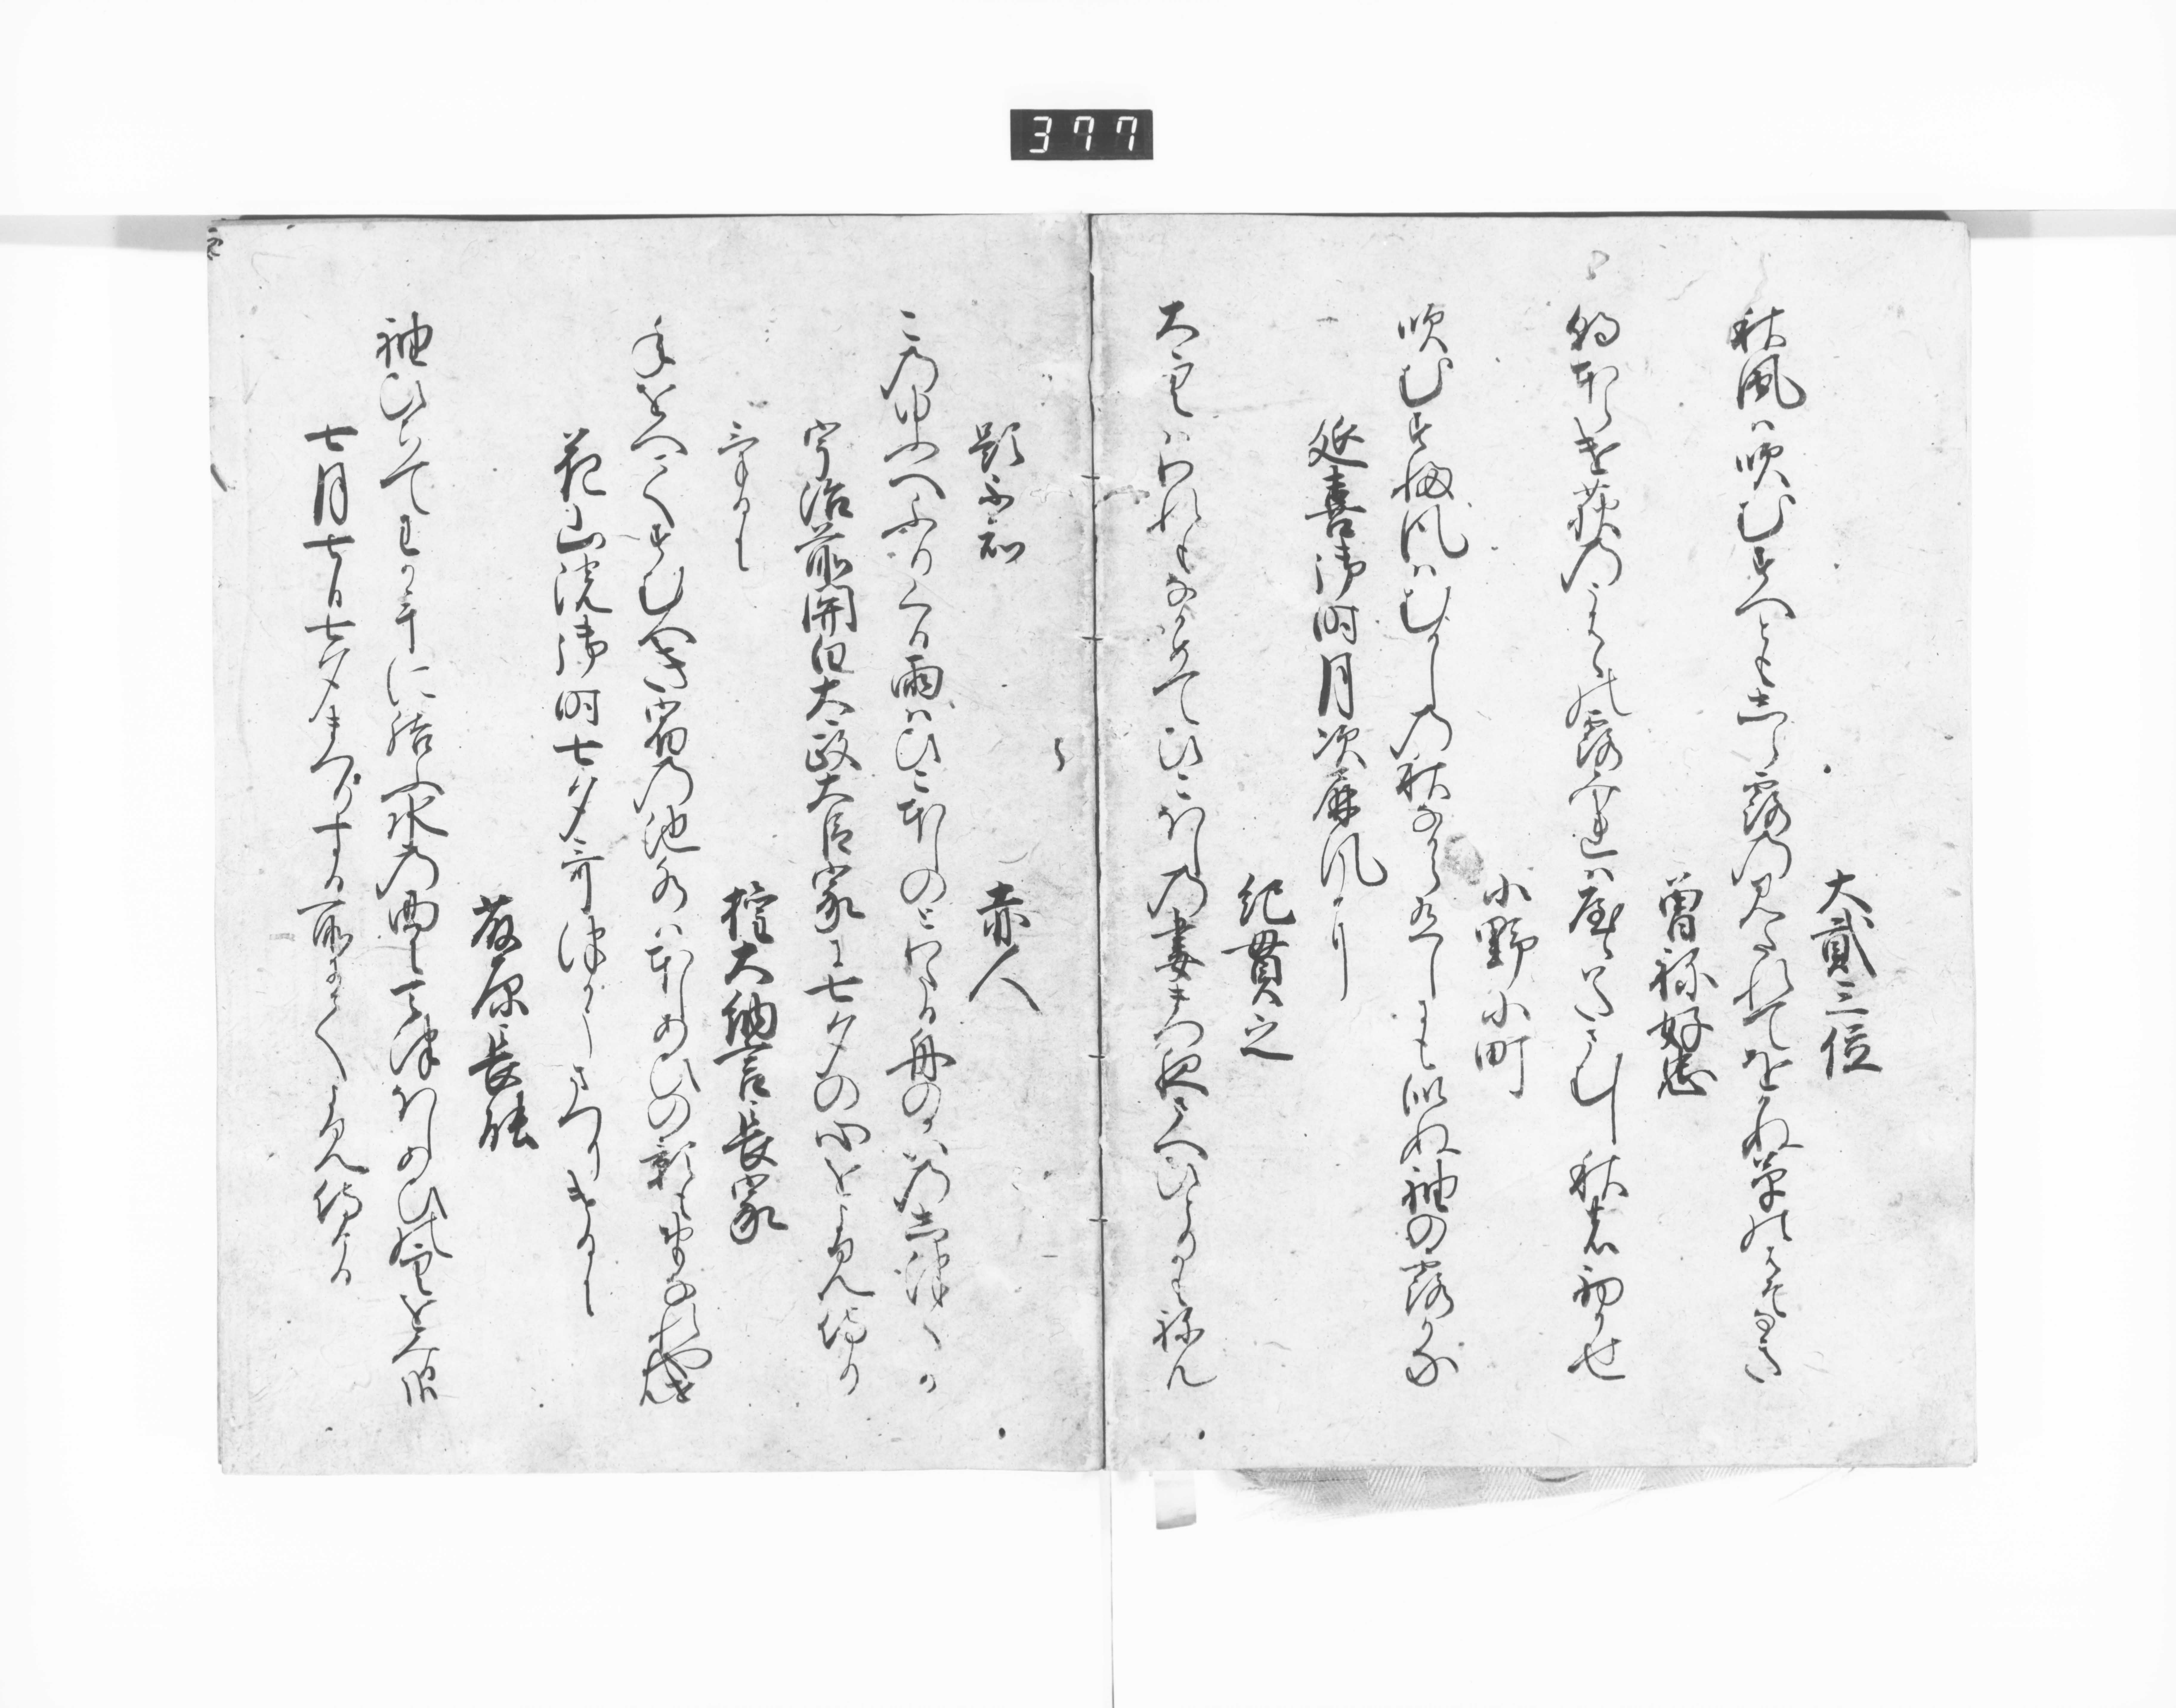 377
大貳三位
秋風は吹むすへとも白露のみたれてをかぬ草のはそなき
曽祢好忠
朝ほらけ荻のうはゝの露みれはやゝはたさむし秋の初かせ
小野小町
吹むすふ風はむかしの秋なからありしにも似ぬ袖の露かな
延喜御時月次屏風に
紀貫之
大空をわれもなかめてひこほしの妻まつ夜さへひとりかもねん
題不知
赤人
この夕へふりくる雨はひこほしのとわたる舟のかいのしつくか
宇治前関白太政大臣家に七夕の心をよみ侍り
けるに
権大納言長家
年をへてすむへき宿の池水はほしあひの影もおもなれやせん
花山院御時七夕哥つかうまつりけるに
藤原長能
袖ひちてわか手に結ふ水の面にあまつほしあひの空をみる哉
七月七日七夕まつりする所にてよみ侍ける